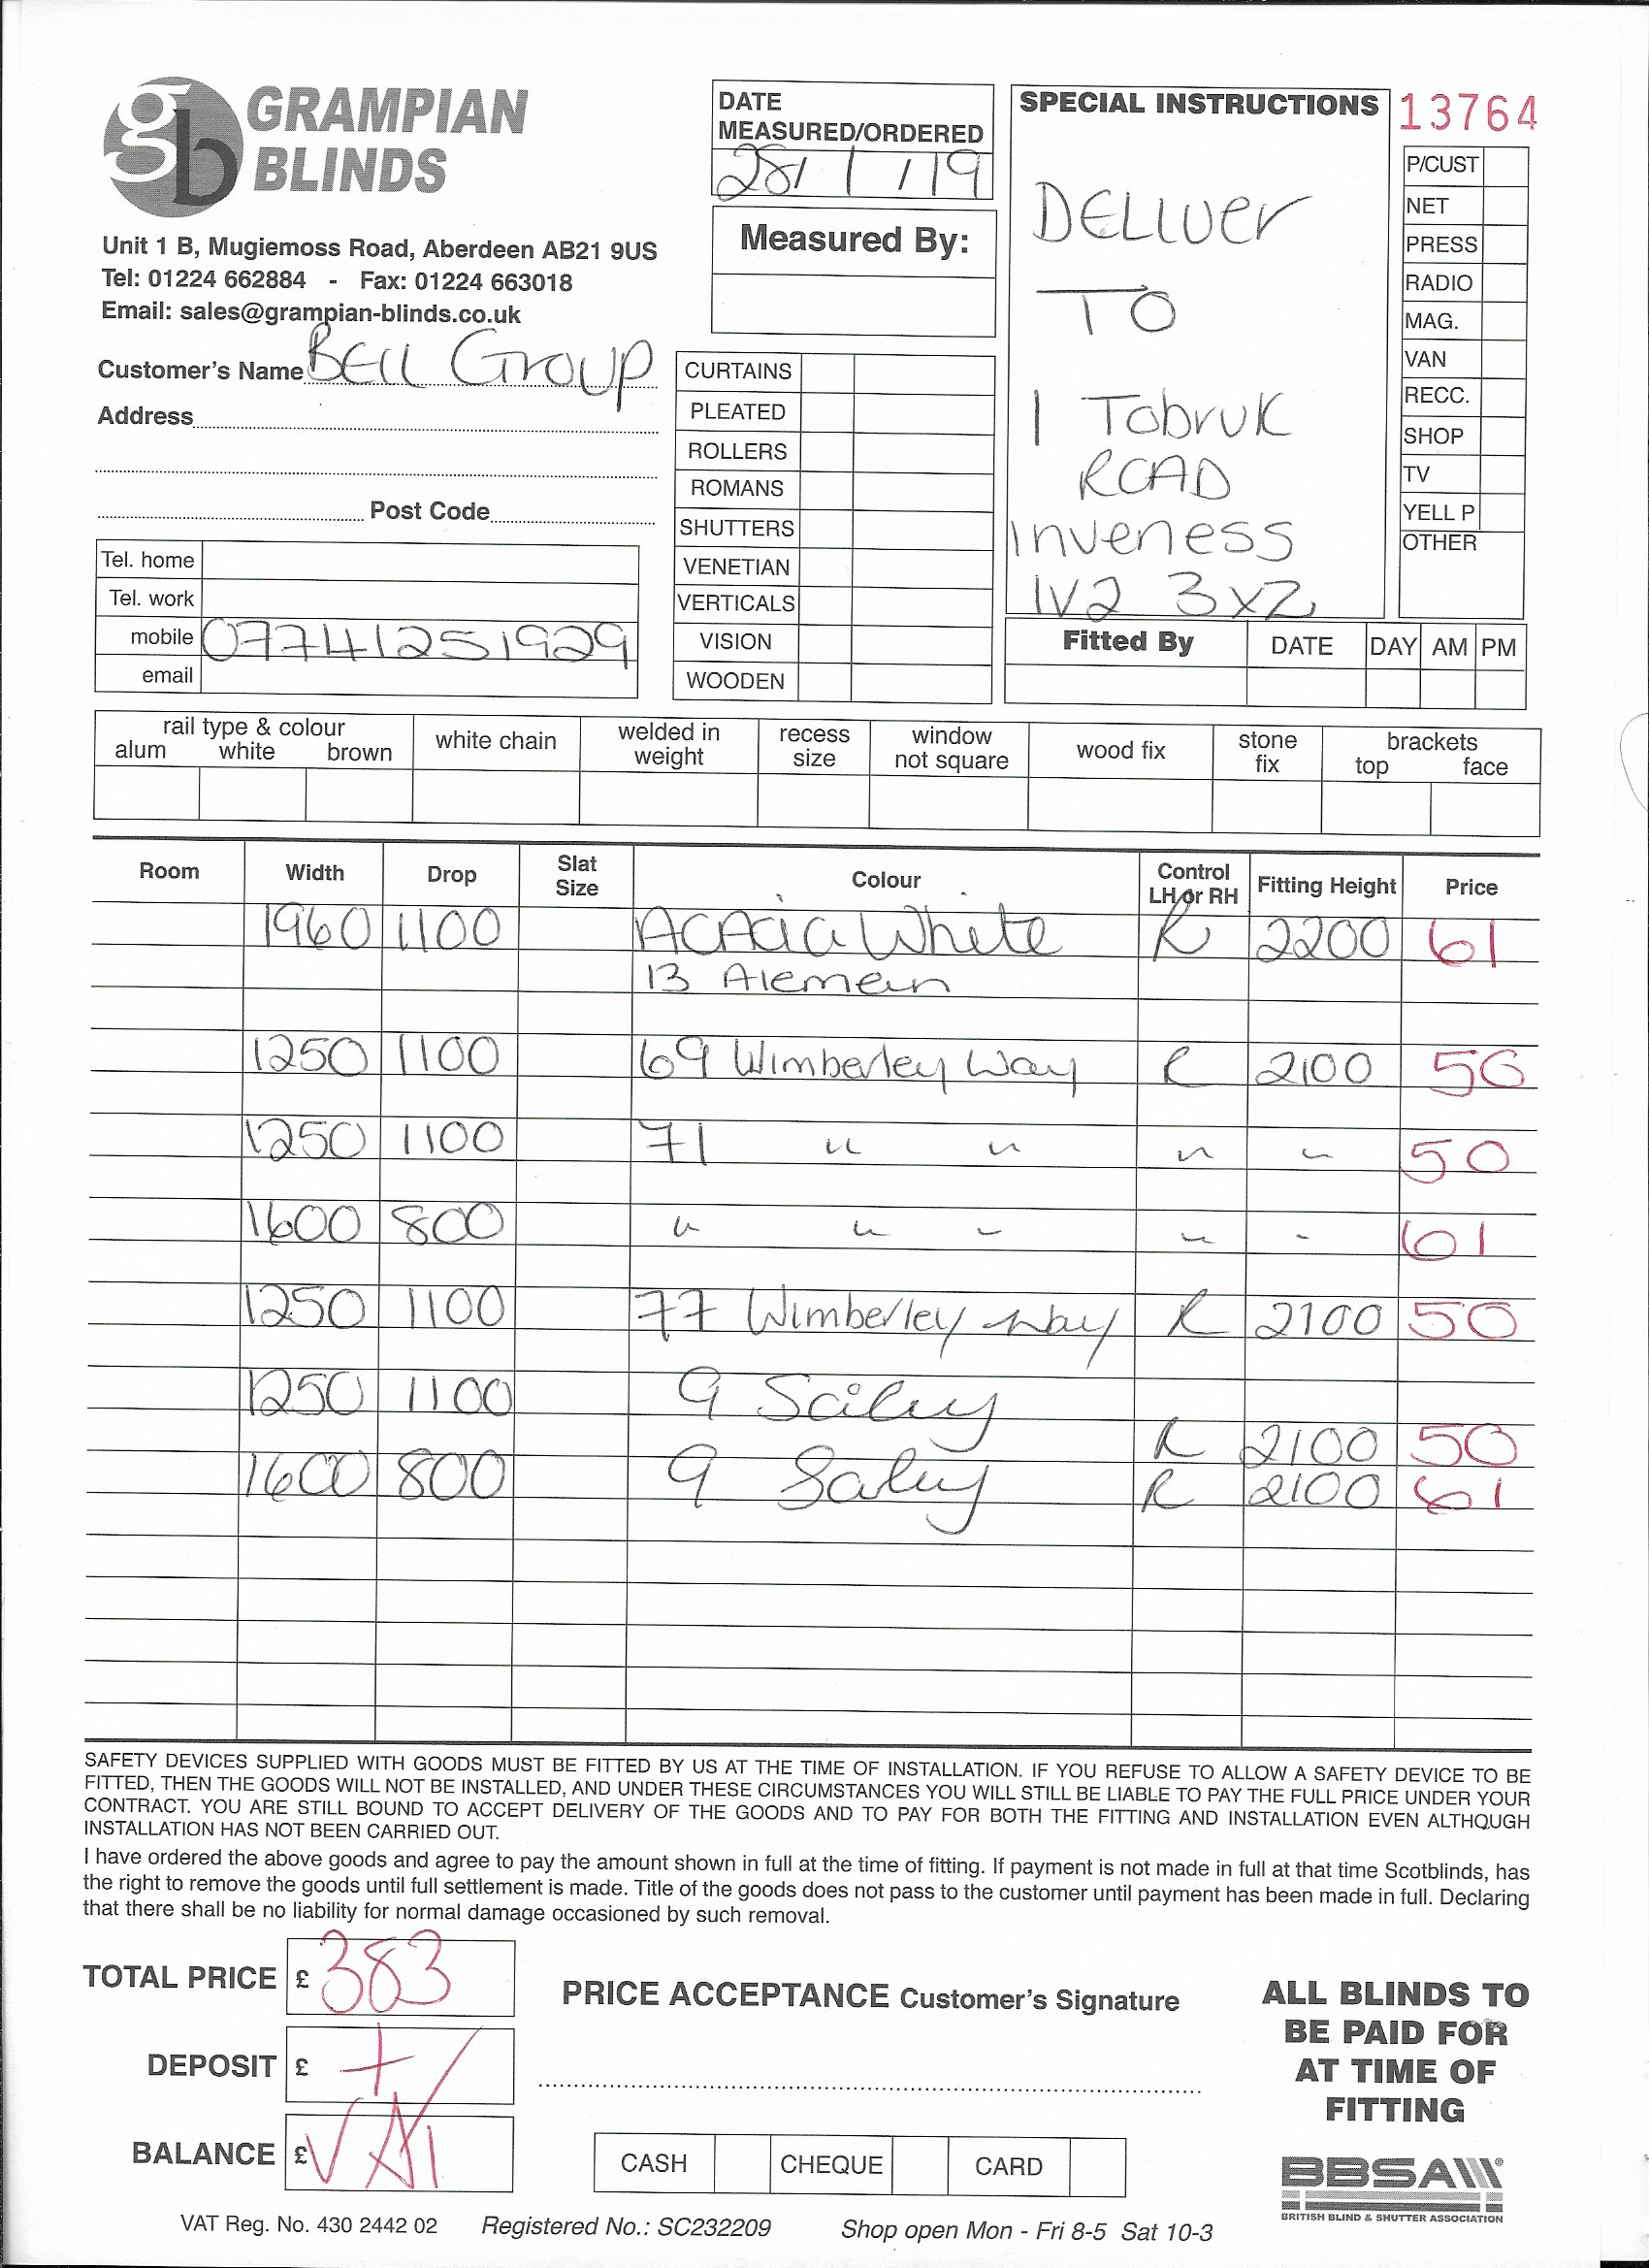 gb GRAMPIAN BLINDS
Unit 1 B, Mugiemoss Road, Aberdeen AB21 9US
Tel: 01224 662884 - Fax: 01224 663018
Email: sales@grampian-blinds.co.uk
Customer's Name BELL GrOUP
Address
Post Code
Tel. home
Tel. work
mobile 07741251929
email
DATE
MEASURED/ORDERED
28/1/19
Measured By:
CURTAINS
PLEATED
ROLLERS
ROMANS
SHUTTERS
VENETIAN
VERTICALS
VISION
WOODEN
SPECIAL INSTRUCTIONS
DELIVer
TO
1 Tobruk
ROAD
Inveness
IV2 3XZ
13764
P/CUST
NET
PRESS
RADIO
MAG.
VAN
RECC.
SHOP
TV
YELL P
OTHER
Fitted By DATE DAY AM PM
rail type & colour white chain welded in weight recess size window not square wood fix stone fix brackets
alum white brown top face
Room Width Drop Slat Size Colour Control LH or RH Fitting Height Price
1960 1100 ACAcia White R 2200 61
13 Alemein
1250 1100 69 Wimberley Way R 2100 50
1250 1100 71 " " " " 50
1600 800 " " " " " 61
1250 1100 77 Wimberley Way R 2100 50
1250 1100 9
R 2100 50
1600 800 9 R 2100 61
SAFETY DEVICES SUPPLIED WITH GOODS MUST BE FITTED BY US AT THE TIME OF INSTALLATION. IF YOU REFUSE TO ALLOW A SAFETY DEVICE TO BE
FITTED, THEN THE GOODS WILL NOT BE INSTALLED, AND UNDER THESE CIRCUMSTANCES YOU WILL STILL BE LIABLE TO PAY THE FULL PRICE UNDER YOUR
CONTRACT. YOU ARE STILL BOUND TO ACCEPT DELIVERY OF THE GOODS AND TO PAY FOR BOTH THE FITTING AND INSTALLATION EVEN ALTHOUGH
INSTALLATION HAS NOT BEEN CARRIED OUT.
I have ordered the above goods and agree to pay the amount shown in full at the time of fitting. If payment is not made in full at that time Scotblinds, has
the right to remove the goods until full settlement is made. Title of the goods does not pass to the customer until payment has been made in full. Declaring
that there shall be no liability for normal damage occasioned by such removal.
TOTAL PRICE £ 383
DEPOSIT £ +
BALANCE £ VAT
PRICE ACCEPTANCE Customer's Signature
CASH CHEQUE CARD
ALL BLINDS TO
BE PAID FOR
AT TIME OF
FITTING
BBSA
BRITISH BLIND & SHUTTER ASSOCIATION
VAT Reg. No. 430 2442 02 Registered No.: SC232209 Shop open Mon - Fri 8-5 Sat 10-3